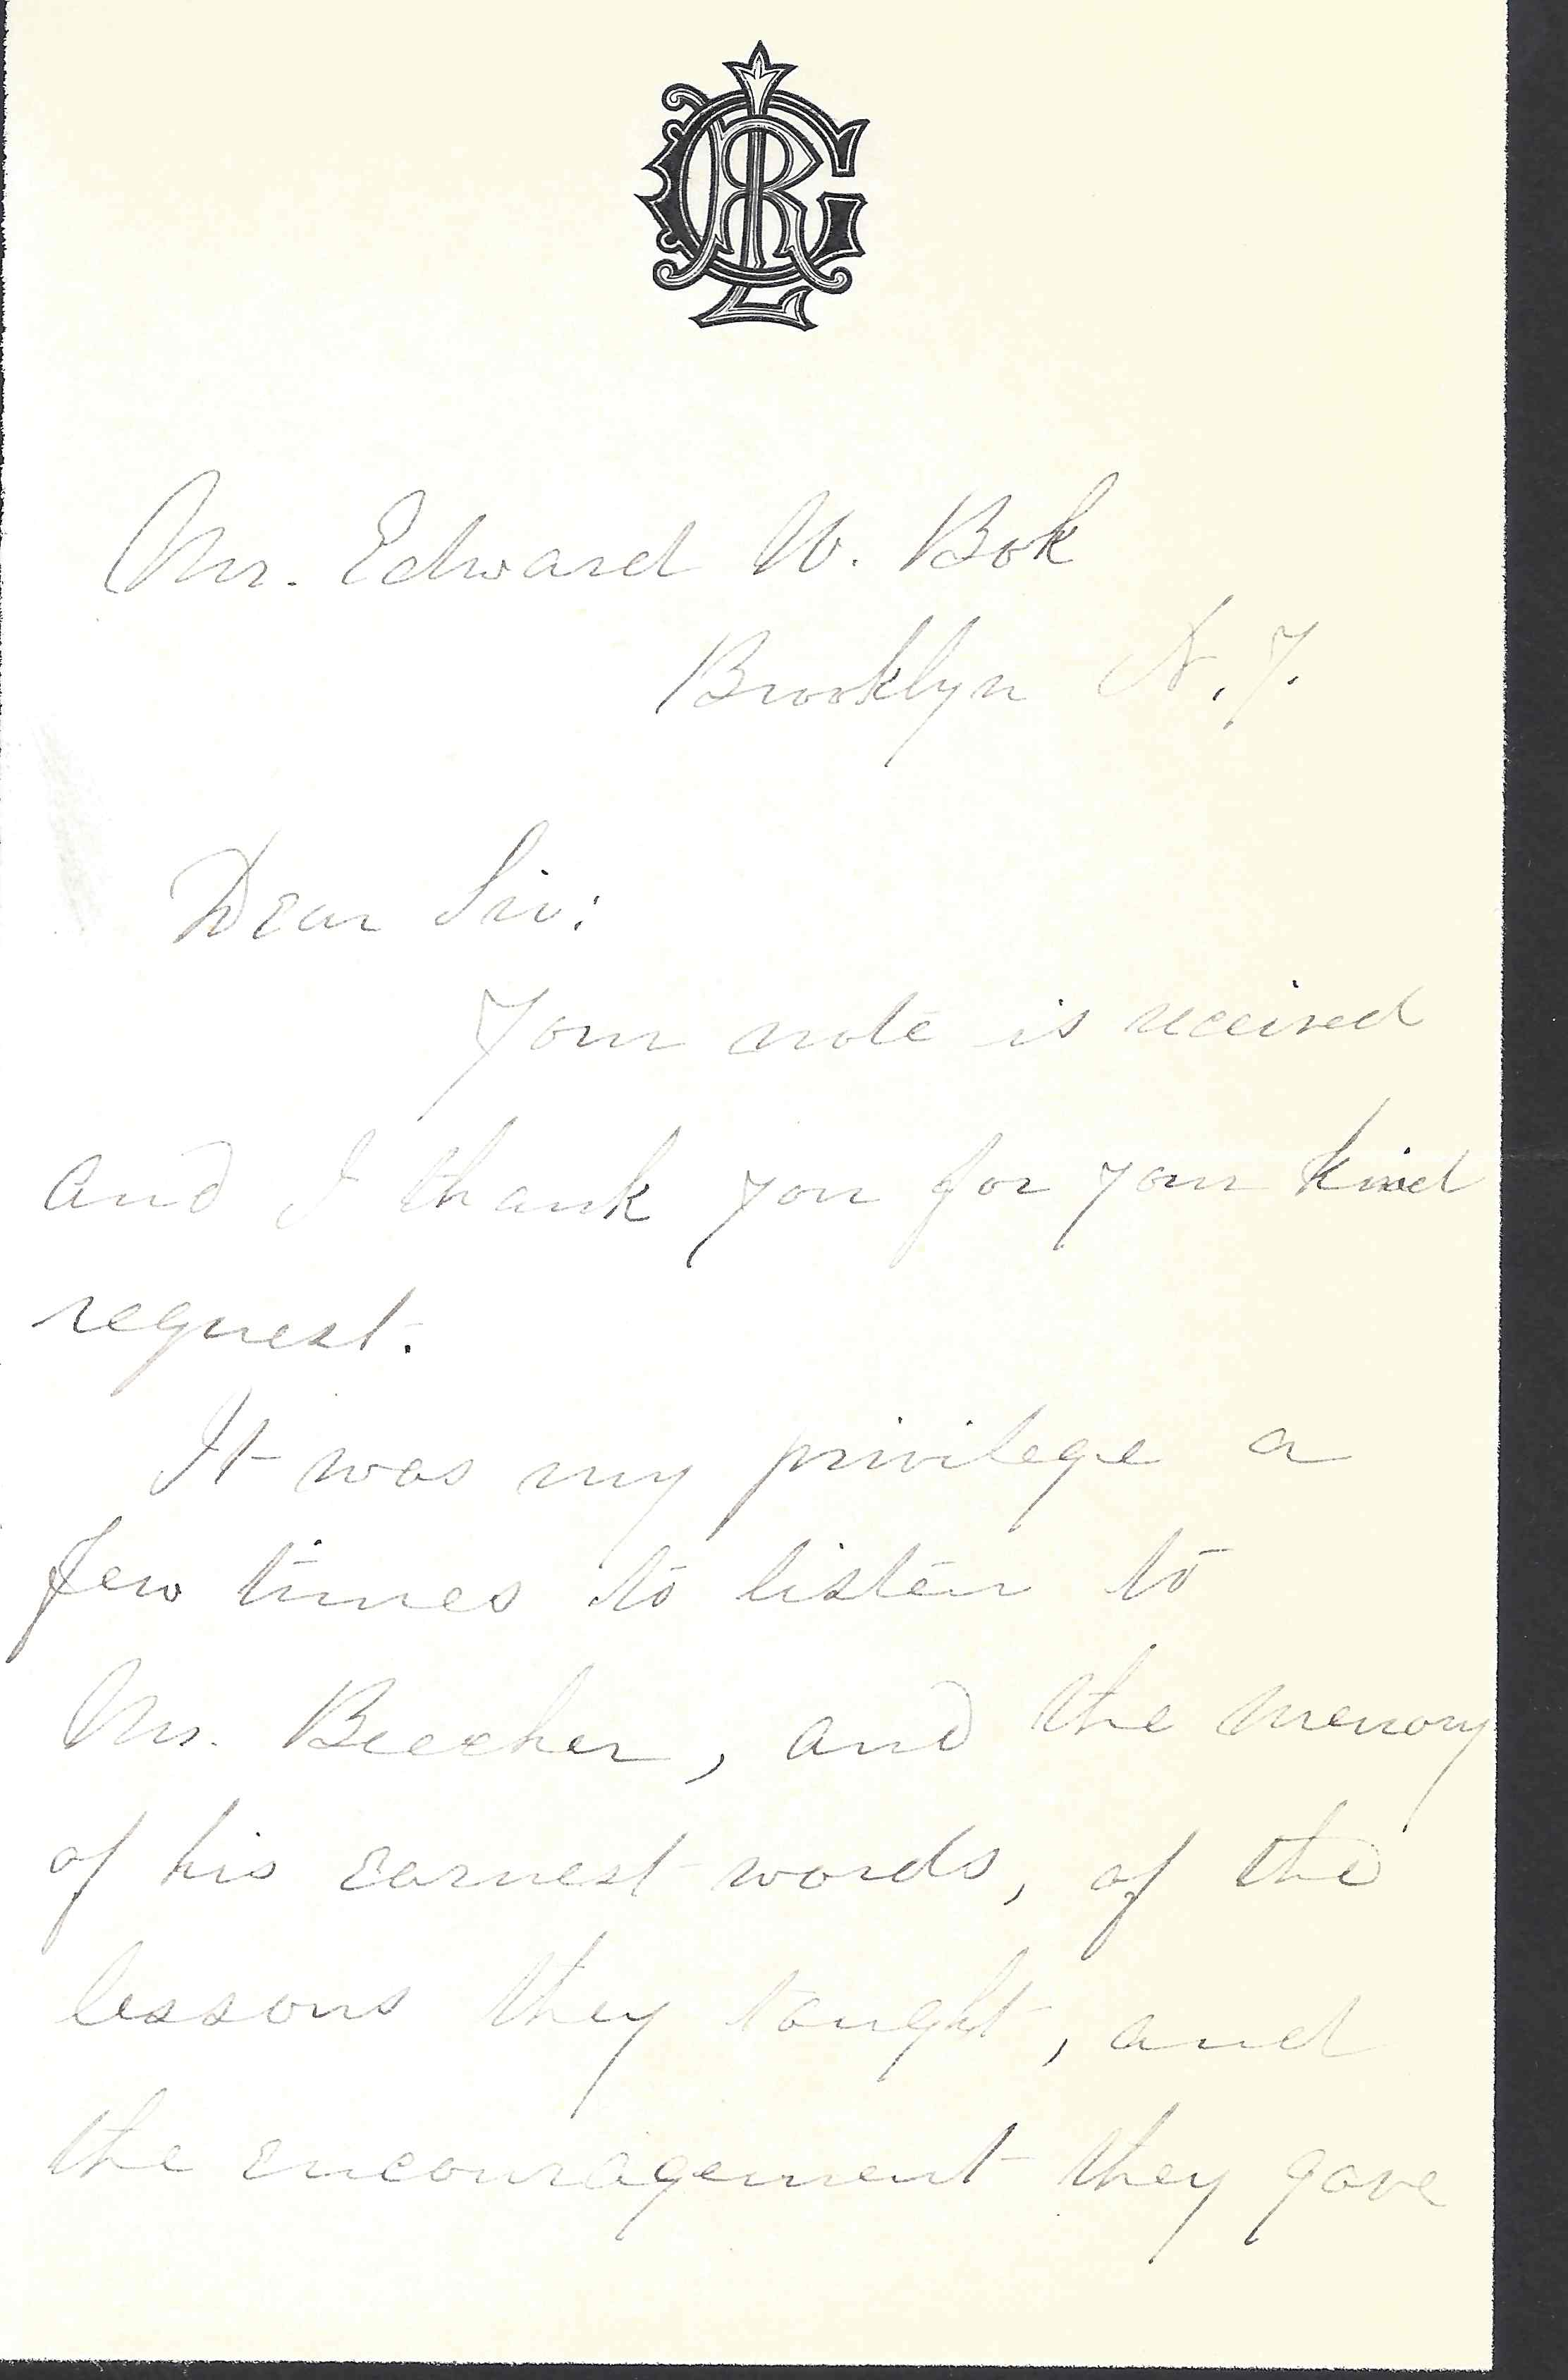 Mr. Edward W. Bok
Brooklyn N.Y.
Dear Sir:
Your note is received
and I thank you for your kind
request.
It was my privilege a
few times to listen to
Mr. Beecher, and the memory
of his earnest words, of the
lessons they taught, and
the encouragement they gave